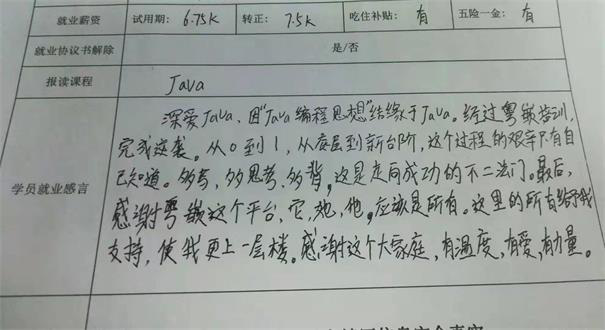 就业薪资 试用期: 6.75K 转正: 7.5K 吃住补贴: 有 五险一金: 有
就业协议书解除 是/否
报读课程 Java
学员就业感言
深爱Java、因"Java编程思想"结缘于Java。经过粤嵌培训,
完成逆袭。从0到1,从底层到新台阶,这个过程的艰辛只有自
己知道。多看,多思考、多背,这是走向成功的不二法门。最后,
感谢粤嵌这个平台,它,她,他,应该是所有。这里的所有给予我
支持,使我更上一层楼。感谢这个大家庭,有温度、有爱,有力量。